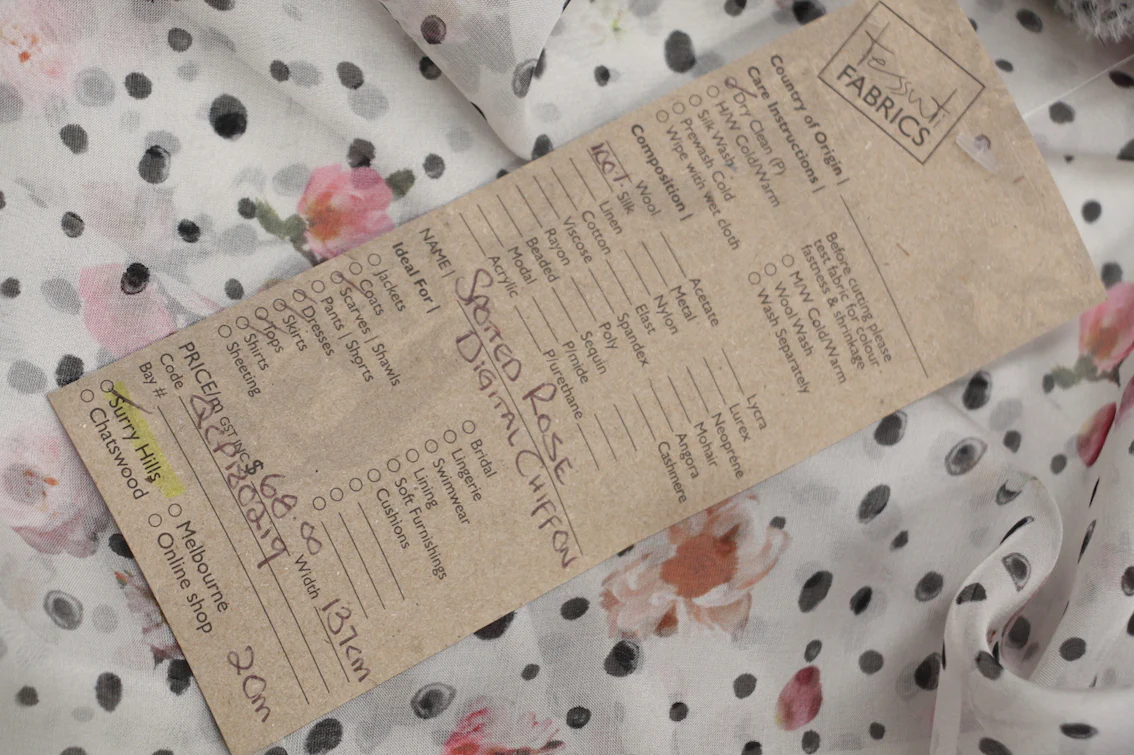 tessuti
FABRICS
Country of Origin |
Care Instructions |
Dry Clean (P)
H/W Cold/Warm
Silk Wash
Prewash Cold
Wipe with wet cloth
Before cutting please
test fabric for colour
fastness & shrinkage
M/W Cold/Warm
Wool Wash
Wash Separately
Composition |
Wool Acetate Lycra
100% Silk Metal Lurex
Linen Nylon Neoprene
Cotton Elast Mohair
Viscose Spandex Angora
Rayon Poly Cashmere
Beaded Sequin
Modal P/mide
Acrylic P/urethane
NAME | SPOTTED ROSE
DIGITAL CHIFFON
Ideal For |
Jackets
Coats
Scarves | Shawls
Pants | Shorts
Dresses
Skirts
Tops
Shirts
Sheeting
Bridal
Lingerie
Swimwear
Lining
Soft Furnishings
Cushions
PRICE/m GST INC $ 68.00 Width 137cm
Code
Bay # 20m
Surry Hills Melbourne
Chatswood Online shop